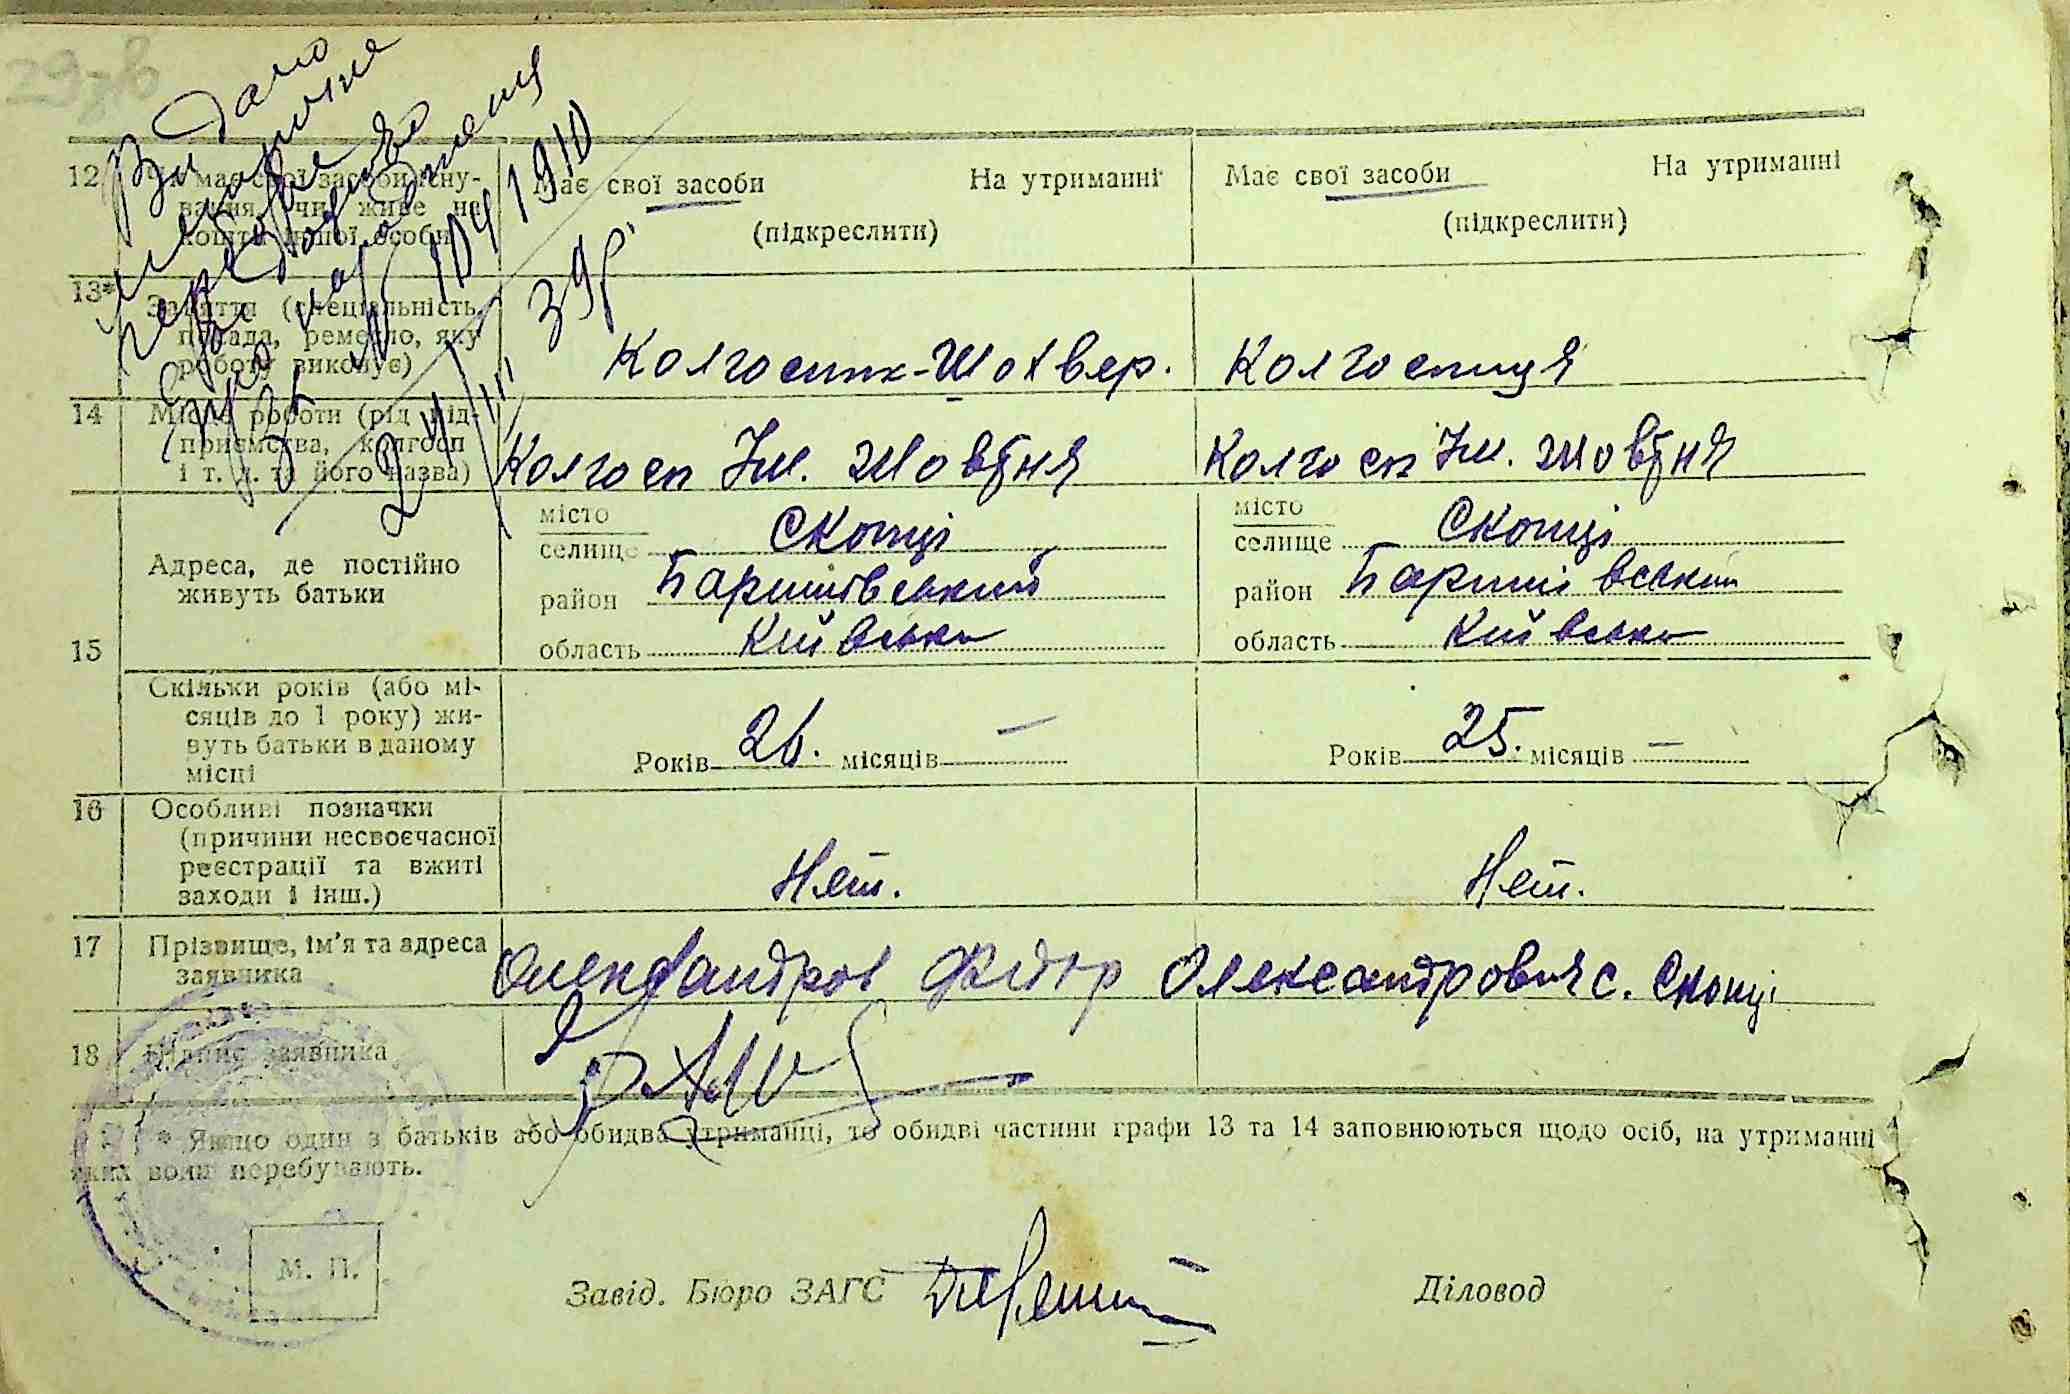 29зв
Видано
повторне
про народження
№ 1041910
24/III 39р.
12 Чи має свої засоби існу- Має свої засоби На утриманні Має свої засоби На утриманні
вання, чи живе на (підкреслити) (підкреслити)
кошти іншої особи
13* Заняття (спеціальність,
посада, ремесло, яку
роботу виконує) Колгоспник-Шохвер. Колгоспниця
14 Місце роботи (рід під-
приємства, колгосп
і т. д. та його назва) Колгосп Ім. Жовтня Колгосп Ім. Жовтня
15 Адреса, де постійно
живуть батьки
місто
селище Скопці
район Баришівський
область Київська
місто
селище Скопці
район Баришівський
область Київська
Скільки років (або мі-
сяців до 1 року) жи-
вуть батьки в даному
місці
Років 26. місяців — Років 25. місяців —
16 Особливі позначки
(причини несвоєчасної
реєстрації та вжиті
заходи і інш.) Нет. Нет.
17 Прізвище, ім'я та адреса
заявника Олександров Федір Олександрович с. Скопці
18 Підпис заявника
* Якщо один з батьків або обидва утриманці, то обидві частини графи 13 та 14 заповнюються щодо осіб, на утриманні
яких вони перебувають.
М. П.
Завід. Бюро ЗАГС Діловод